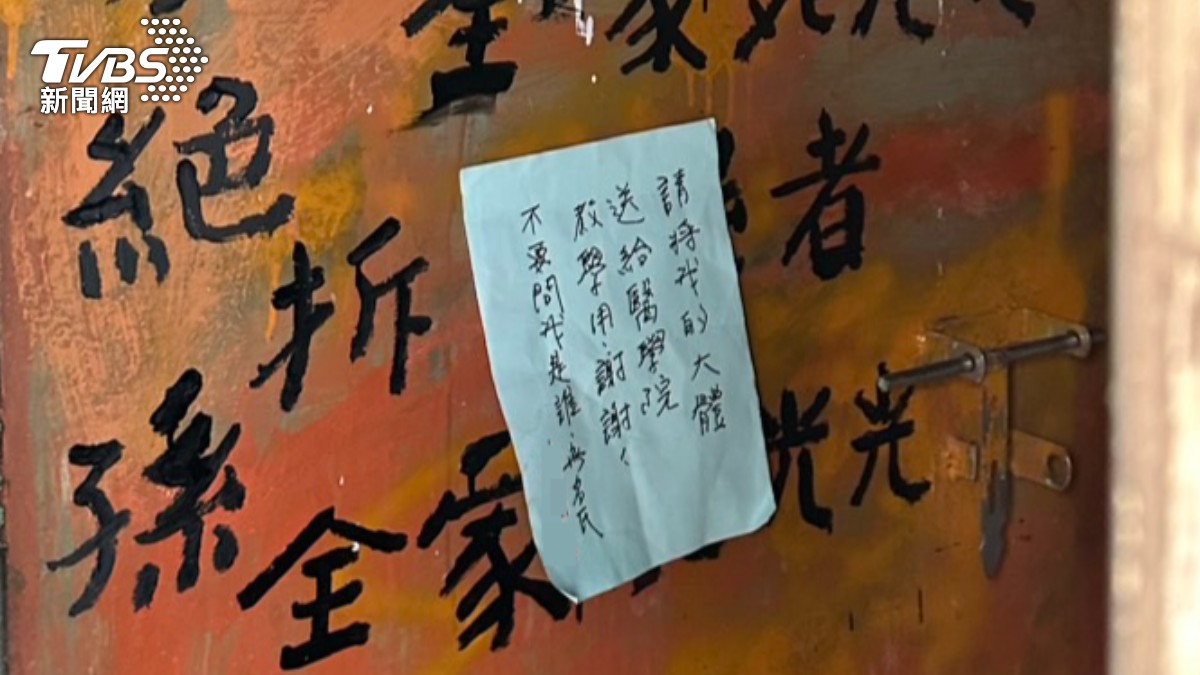 TVBS
新聞網
請將我的大體
送給醫學院
教學用、謝謝！
不要問我是誰、無名氏
全家死光光
絕
拆
者
孫
全家
光光